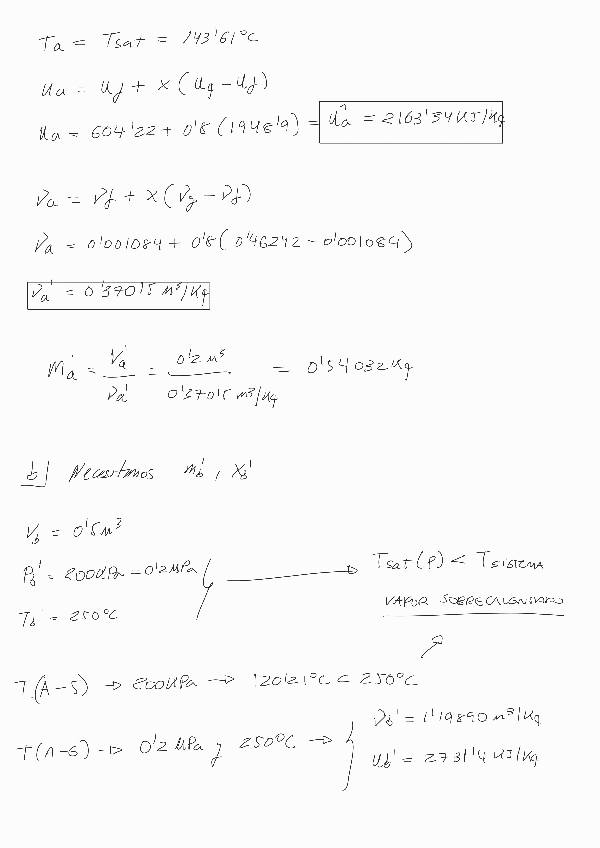 Ta = Tsat = 143'61°C
ua = uf + x (ug - uf)
ua = 604'22 + 0'8 (1948'9) = ua' = 2163'34 KJ/Kg
νa = νf + x (νg - νf)
νa = 0'001084 + 0'8 (0'46242 - 0'001084)
νa' = 0'37015 m³/Kg
ma' = Va' / νa' = 0'2 m³ / 0'37015 m³/Kg = 0'54032 Kg
b) Necesitamos mb', xb'
Vb = 0'5 m³
Pb' = 200 KPa - 0'2 MPa → Tsat(P) < TSISTEMA
Tb' = 250°C VAPOR SOBRECALENTADO
T.(A-5) → 200 KPa → 120'21°C < 250°C
T(A-6) → 0'2 MPa y 250°C → { νb' = 1'19890 m³/Kg
ub' = 2731'4 KJ/Kg